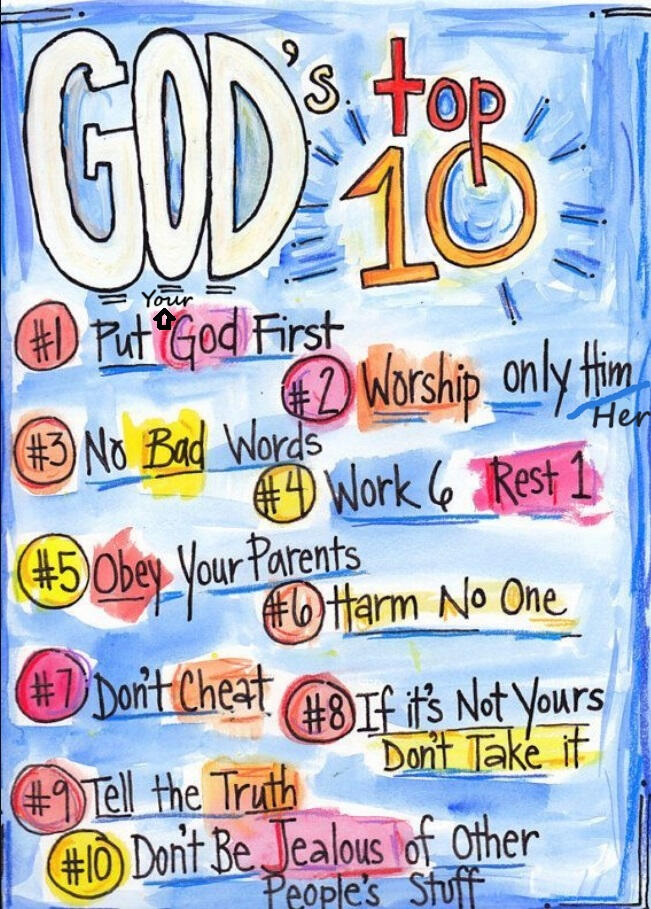 GOD's top
10
Your
#1 Put God First
#2 Worship only Him
Her
#3 No Bad Words
#4 Work 6 Rest 1
#5 Obey Your Parents
#6 Harm No One
#7 Don't Cheat
#8 If it's Not Yours
Don't Take it
#9 Tell the Truth
#10 Don't Be Jealous of Other
People's Stuff